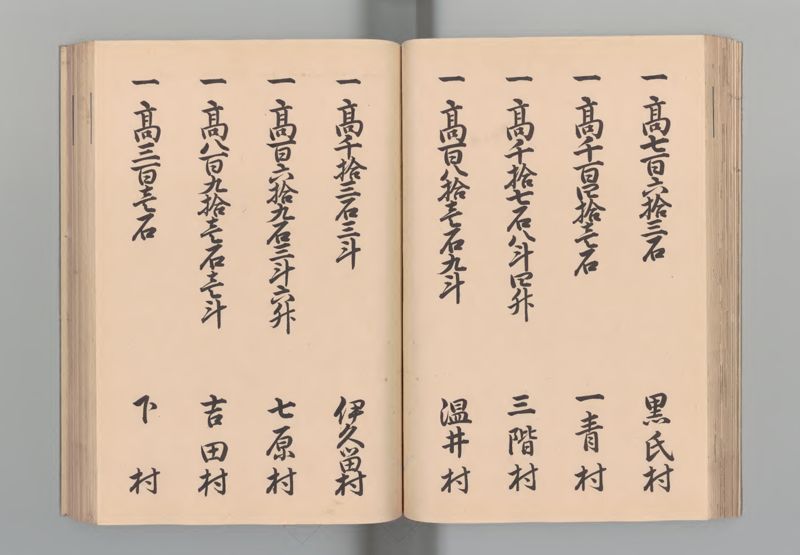 一髙七百六拾三石 黒氏村
一髙千百四拾壱石 一青村
一髙千拾七石八斗四升 三階村
一髙百八拾壱石九斗 温井村
一髙千拾三石三斗 伊久留村
一髙百六拾九石三斗六升 七原村
一髙八百九拾壱石壱斗 吉田村
一髙三百壱石 下村